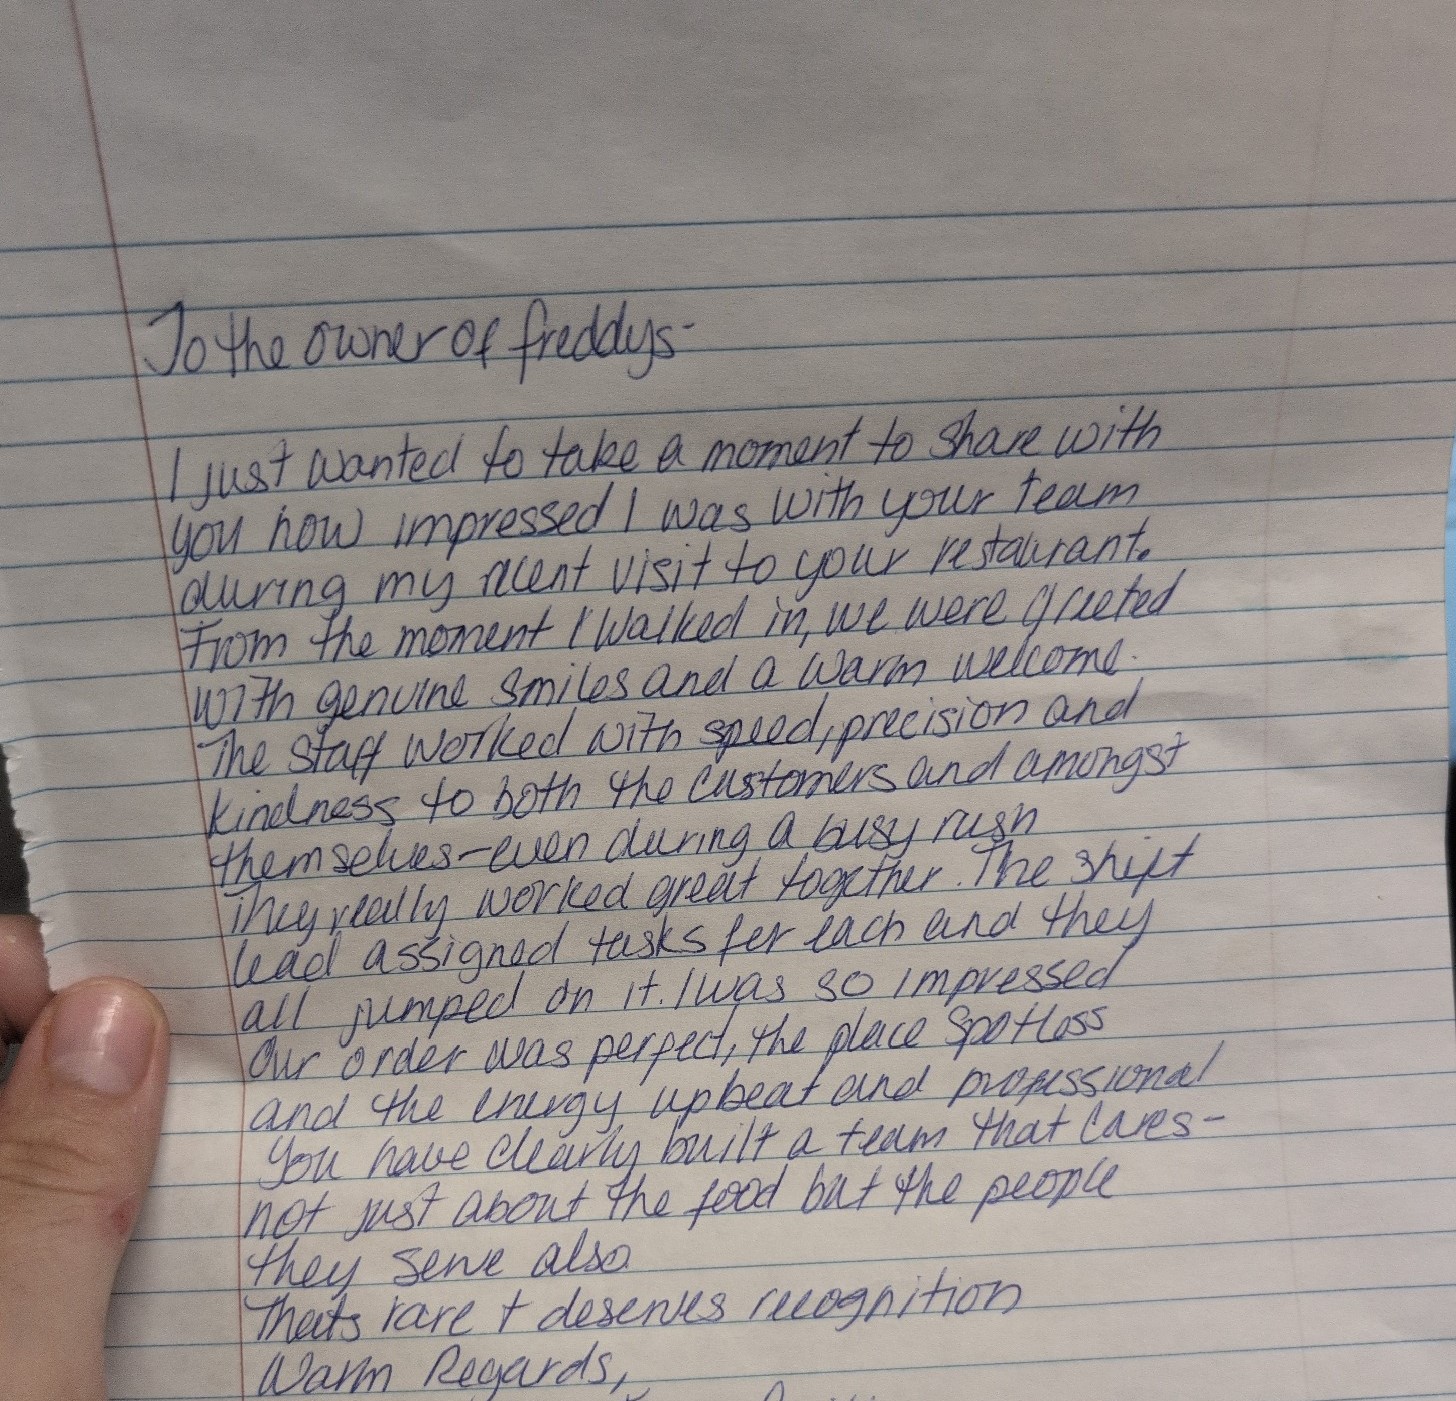 To the owner of freddys-
I just wanted to take a moment to share with
you how impressed I was with your team
during my recent visit to your restaurant.
From the moment I walked in, we were greeted
with genuine smiles and a warm welcome.
The staff worked with speed, precision and
kindness to both the customers and amongst
themselves-even during a busy rush
They really worked great together. The shift
lead assigned tasks for each and they
all jumped on it. I was so impressed
Our order was perfect, the place spotless
and the energy upbeat and professional
You have clearly built a team that cares-
not just about the food but the people
they serve also
Thats rare + deserves recognition
Warm Regards,